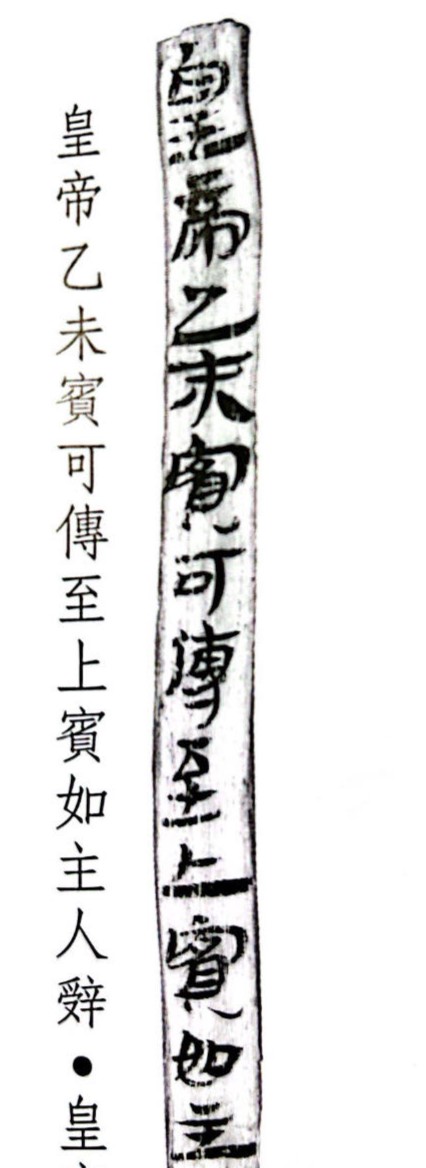 皇帝乙未賓可傳至上賓如主
皇帝乙未賓可傳至上賓如主人辤●皇